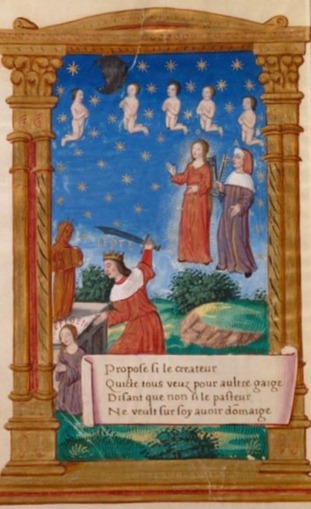 Propose si le createur
Quicte tous veuz pour aultre gaige
Disant que non si le pasteur
Ne veult sur soy auoir dõmaige